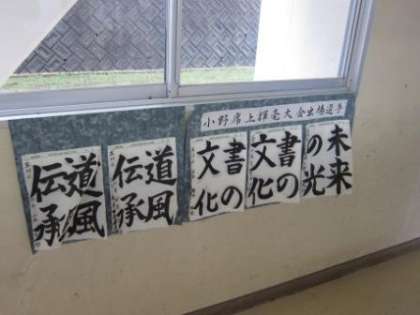 小野席上揮毫大会出場選手
未来
の光
書の
文化
書の
文化
道風
伝承
道風
伝承